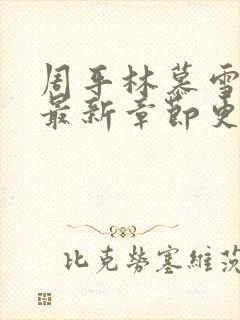 周平林慕雪
最新章节更
比克劳塞维茨